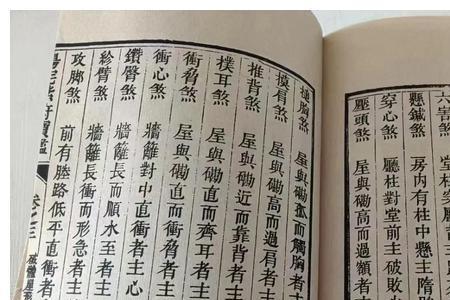 六害煞
懸鍼煞 房内有柱中懸主隋
穿心煞 廳柱對堂前主破敗
壓頭煞 屋與磡高而過額者
搥胸煞 屋與磡孤而觸胸者主
摸肩煞 屋與磡高而過肩者主
推背煞 屋與磡近而靠背者主
撲耳煞 屋與磡直而齊耳者主
衝脅煞 屋與磡直而衝脅者主
衝心煞 牆籬對中直衝者主心
鑽臀煞 牆籬長而順水至者主
紾臂煞 牆籬長衝而形急者主
攻脚煞 前有塍路低平直衝者
陽宅紫府寶鑑 卷之三